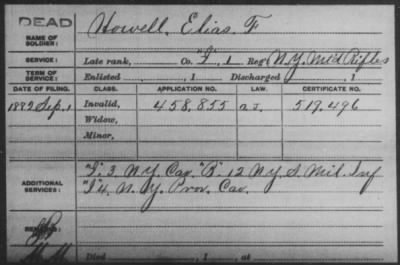 DEAD
NAME OF SOLDIER: Howell, Elias. F
SERVICE: Late rank, Co. "I", 1 Reg't N.Y. Mt'd Rifles
TERM OF SERVICE: Enlisted , 1 Discharged , 1
DATE OF FILING. CLASS. APPLICATION NO. LAW. CERTIFICATE NO.
1882 Sep. 1 Invalid, 458,855 519,496
Widow,
Minor,
ADDITIONAL SERVICES: "I", 3 N.Y. Cav. "B", 12 N.Y. S. Mil. Inf
"I" 4. N.Y. Prov. Cav.
REMARKS:
Died , 1 , at